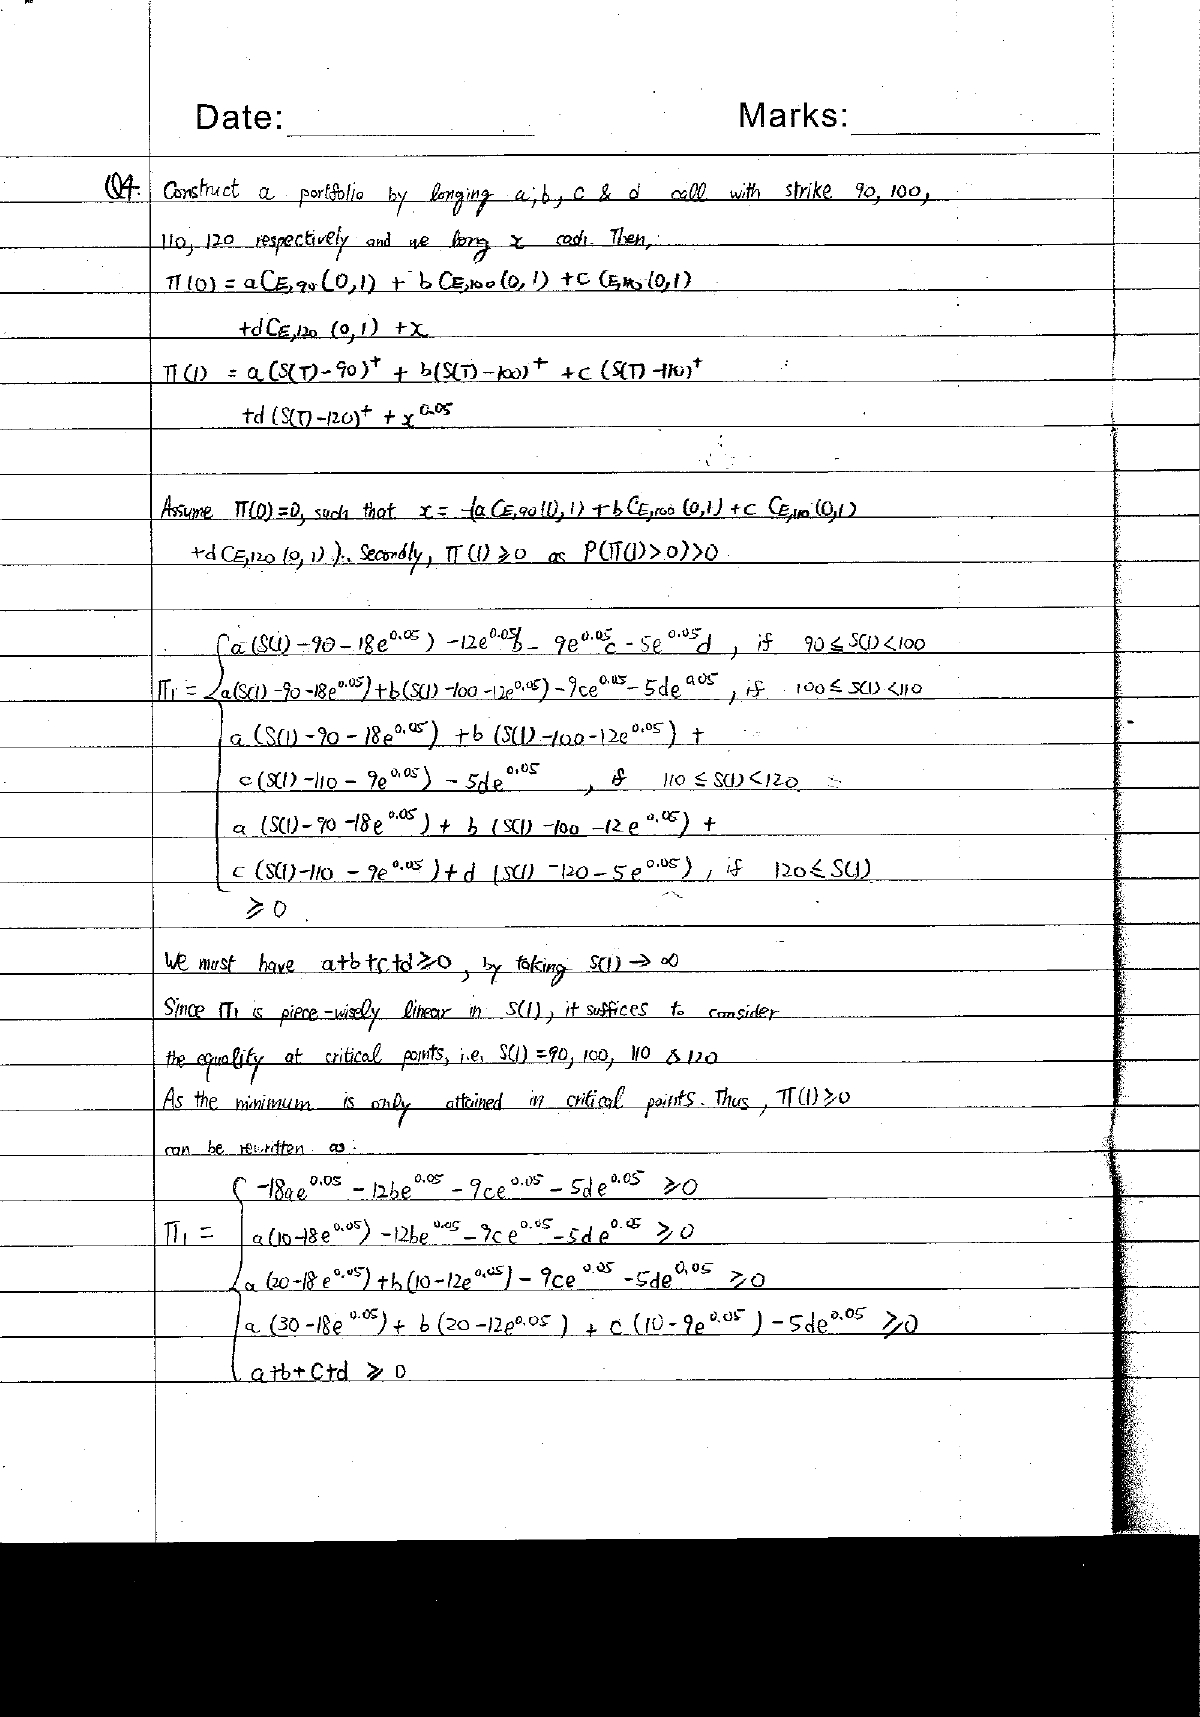 Date: Marks:
Q4. Construct a portfolio by longing a, b, c & d call with strike 90, 100,
110, 120 respectively and we long x cash. Then,
Π(0) = aC_{E,90}(0,1) + bC_{E,100}(0,1) + cC_{E,110}(0,1)
+dC_{E,120}(0,1) + x
Π(1) = a(S(T)-90)^+ + b(S(T)-100)^+ + c(S(T)-110)^+
+d(S(T)-120)^+ + x^{0.05}
Assume Π(0)=0, such that x = -(aC_{E,90}(0,1) + bC_{E,100}(0,1) + c C_{E,110}(0,1)
+dC_{E,120}(0,1)). Secondly, Π(1) ≥ 0 as P(Π(1)>0)>0
a(S(1)-90-18e^{0.05}) -12e^{0.05}b - 9e^{0.05}c - 5e^{0.05}d, if 90 ≤ S(1) < 100
Π1 = { a(S(1)-90-18e^{0.05}) + b(S(1)-100-12e^{0.05}) - 9ce^{0.05} - 5de^{0.05}, if 100 ≤ S(1) < 110
a(S(1)-90-18e^{0.05}) + b(S(1)-100-12e^{0.05}) +
c(S(1)-110-9e^{0.05}) - 5de^{0.05}, if 110 ≤ S(1) < 120
a(S(1)-90-18e^{0.05}) + b(S(1)-100-12e^{0.05}) +
c(S(1)-110-9e^{0.05}) + d(S(1)-120-5e^{0.05}), if 120 ≤ S(1)
≥ 0
We must have a+b+c+d ≥ 0, by taking S(1) → ∞
Since Π1 is piece-wisely linear in S(1), it suffices to consider
the equality at critical points, i.e. S(1) = 90, 100, 110 & 120
As the minimum is only attained in critical points. Thus, Π(1) ≥ 0
can be rewritten as:
-18ae^{0.05} - 12be^{0.05} - 9ce^{0.05} - 5de^{0.05} ≥ 0
Π1 = { a(10-18e^{0.05}) - 12be^{0.05} - 9ce^{0.05} - 5de^{0.05} ≥ 0
a(20-18e^{0.05}) + b(10-12e^{0.05}) - 9ce^{0.05} - 5de^{0.05} ≥ 0
a(30-18e^{0.05}) + b(20-12e^{0.05}) + c(10-9e^{0.05}) - 5de^{0.05} ≥ 0
a+b+c+d ≥ 0